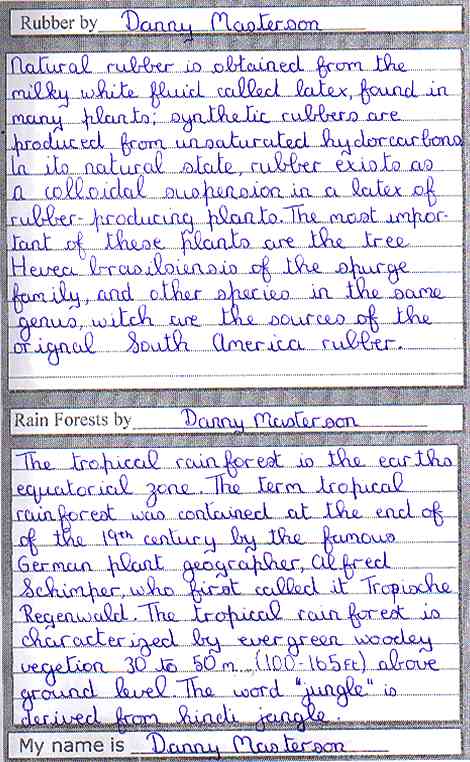 Rubber by Danny Masterson
Natural rubber is obtained from the
milky white fluid called latex, found in
many plants; synthetic rubbers are
produced from unsaturated hydorcarbons
In its natural state, rubber exists as
a colloidal suspension in a latex of
rubber-producing plants. The most impor-
tant of these plants are the tree
Hevea brasilsiensis of the spurge
family, and other species in the same
genus, witch are the sources of the
orignal South America rubber.
Rain Forests by Danny Masterson
The tropical rainforest is the earths
equatorial zone. The term tropical
rainforest was contained at the end of
of the 19th century by the famous
German plant geographer, Alfred
Schimper, who first called it Tropische
Regenwald. The tropical rain forest is
characterized by evergreen woodey
vegetion 30 to 50 m... (100-165ft) above
ground level. The word "jungle" is
derived from hindi jangle.
My name is Danny Masterson